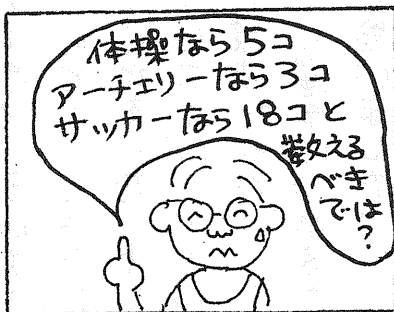 体操なら5コ
アーチェリーなら3コ
サッカーなら18コと
数える
べき
では?